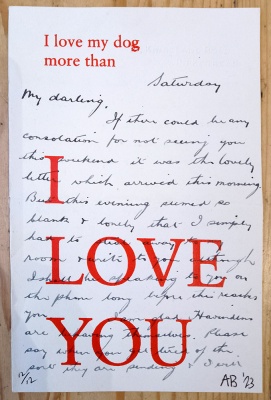 I love my dog
more than
Saturday
My darling,
If there could be any
consolation for not seeing you
this weekend it was the lovely
letter which arrived this morning.
But this evening seemed so
blank & lonely that I simply
had to
room & write to you although
I shall be speaking to you on
the phone long before this reaches
you
are themselves. Please
say when you are tired of the
sort they are sending & I will
I
LOVE
YOU
12/12
AB '23